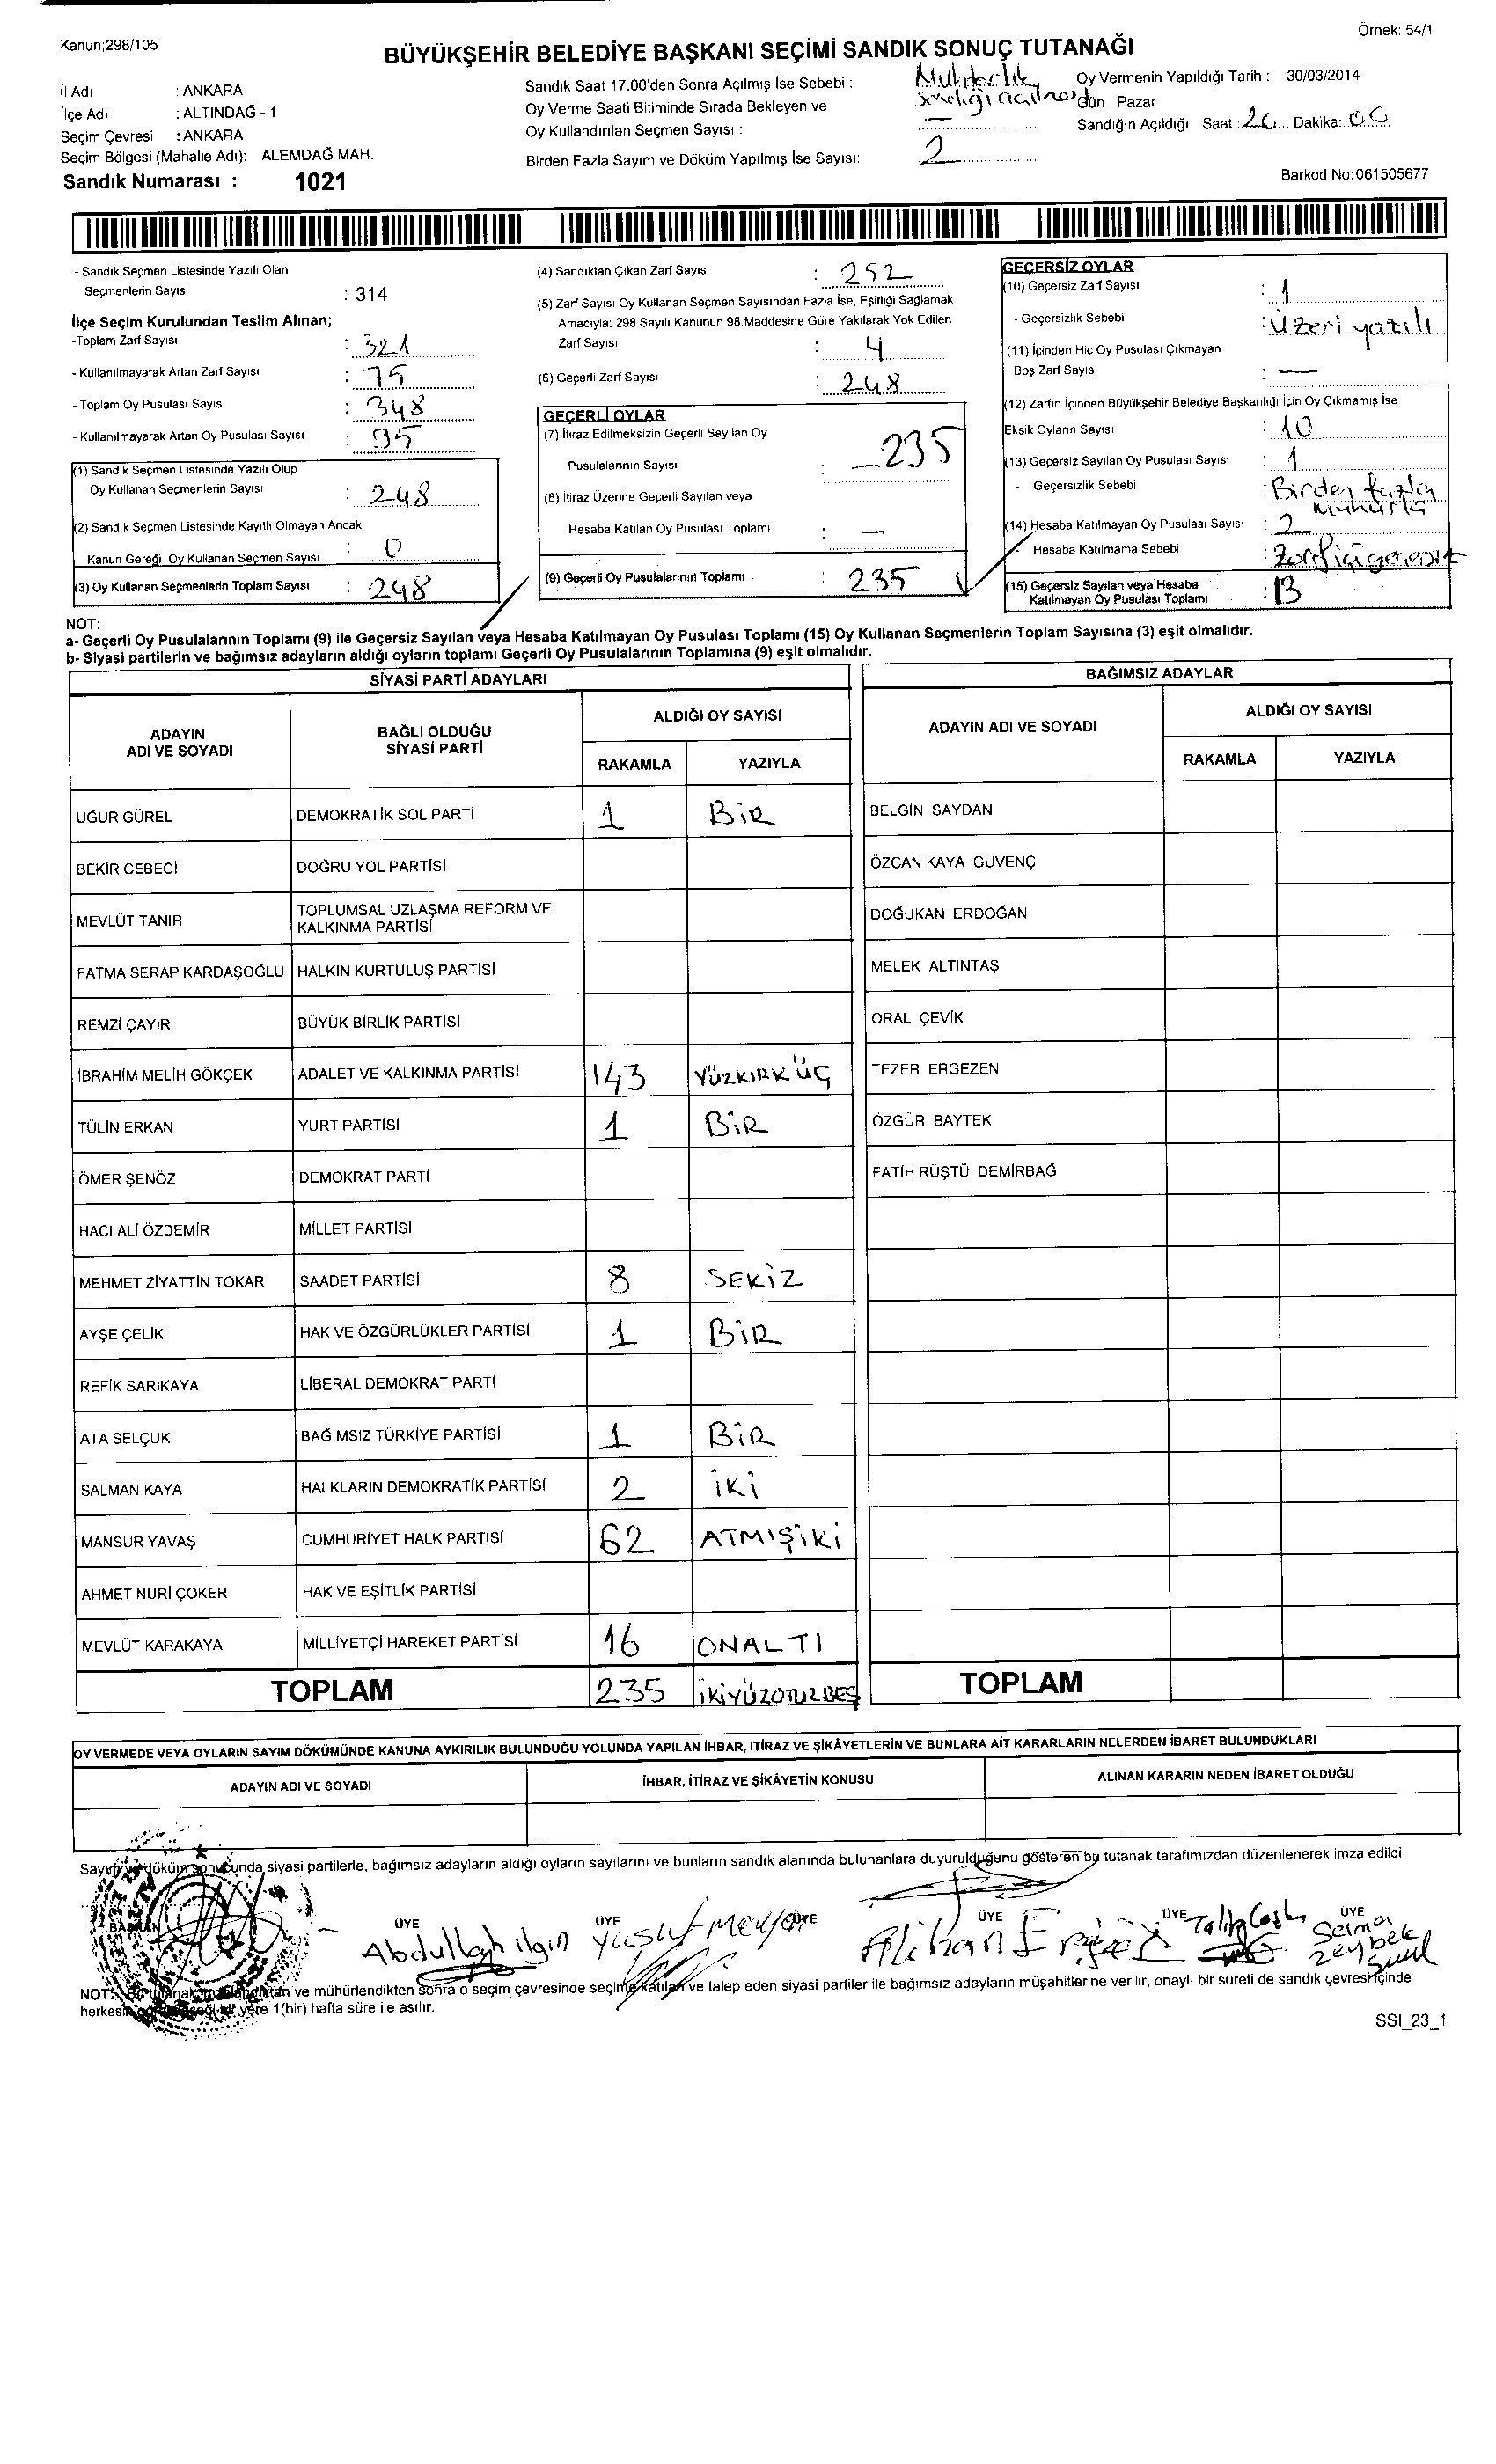 Kanun;298/105
Örnek: 54/1
BÜYÜKŞEHİR BELEDİYE BAŞKANI SEÇİMİ SANDIK SONUÇ TUTANAĞI
İl Adı : ANKARA
İlçe Adı : ALTINDAĞ - 1
Seçim Çevresi : ANKARA
Seçim Bölgesi (Mahalle Adı): ALEMDAĞ MAH.
Sandık Numarası : 1021
Sandık Saat 17.00'den Sonra Açılmış İse Sebebi : Muhtarlık
Oy Verme Saati Bitiminde Sırada Bekleyen ve
Oy Kullandırılan Seçmen Sayısı : —
Birden Fazla Sayım ve Döküm Yapılmış İse Sayısı: 2
Oy Vermenin Yapıldığı Tarih : 30/03/2014
Gün : Pazar
Sandığın Açıldığı Saat : 20 Dakika: 00
Barkod No:061505677
- Sandık Seçmen Listesinde Yazılı Olan
Seçmenlerin Sayısı : 314
İlçe Seçim Kurulundan Teslim Alınan;
-Toplam Zarf Sayısı : 321
- Kullanılmayarak Artan Zarf Sayısı : 75
- Toplam Oy Pusulası Sayısı : 348
- Kullanılmayarak Artan Oy Pusulası Sayısı : 95
(1) Sandık Seçmen Listesinde Yazılı Olup
Oy Kullanan Seçmenlerin Sayısı : 248
(2) Sandık Seçmen Listesinde Kayıtlı Olmayan Ancak
Kanun Gereği Oy Kullanan Seçmen Sayısı : 0
(3) Oy Kullanan Seçmenlerin Toplam Sayısı : 248
(4) Sandıktan Çıkan Zarf Sayısı : 252
(5) Zarf Sayısı Oy Kullanan Seçmen Sayısından Fazla İse, Eşitliği Sağlamak
Amacıyla: 298 Sayılı Kanunun 98.Maddesine Göre Yakılarak Yok Edilen
Zarf Sayısı : 4
(6) Geçerli Zarf Sayısı : 248
GEÇERLİ OYLAR
(7) İtiraz Edilmeksizin Geçerli Sayılan Oy
Pusulalarının Sayısı : 235
(8) İtiraz Üzerine Geçerli Sayılan veya
Hesaba Katılan Oy Pusulası Toplamı : —
(9) Geçerli Oy Pusulalarının Toplamı : 235
GEÇERSİZ OYLAR
(10) Geçersiz Zarf Sayısı : 1
- Geçersizlik Sebebi : Üzeri yazılı
(11) İçinden Hiç Oy Pusulası Çıkmayan
Boş Zarf Sayısı : —
(12) Zarfın İçinden Büyükşehir Belediye Başkanlığı İçin Oy Çıkmamış İse
Eksik Oyların Sayısı : 10
(13) Geçersiz Sayılan Oy Pusulası Sayısı : 1
- Geçersizlik Sebebi : Birden fazla
mühürlü
(14) Hesaba Katılmayan Oy Pusulası Sayısı : 2
Hesaba Katılmama Sebebi :
(15) Geçersiz Sayılan veya Hesaba
Katılmayan Oy Pusulası Toplamı : 13
NOT:
a- Geçerli Oy Pusulalarının Toplamı (9) ile Geçersiz Sayılan veya Hesaba Katılmayan Oy Pusulası Toplamı (15) Oy Kullanan Seçmenlerin Toplam Sayısına (3) eşit olmalıdır.
b- Siyasi partilerin ve bağımsız adayların aldığı oyların toplamı Geçerli Oy Pusulalarının Toplamına (9) eşit olmalıdır.
SİYASİ PARTİ ADAYLARI
ADAYIN ADI VE SOYADI
BAĞLI OLDUĞU SİYASİ PARTİ
ALDIĞI OY SAYISI
RAKAMLA YAZIYLA
UĞUR GÜREL DEMOKRATİK SOL PARTİ 1 BİR
BEKİR CEBECİ DOĞRU YOL PARTİSİ
MEVLÜT TANIR TOPLUMSAL UZLAŞMA REFORM VE
KALKINMA PARTİSİ
FATMA SERAP KARDAŞOĞLU HALKIN KURTULUŞ PARTİSİ
REMZİ ÇAYIR BÜYÜK BİRLİK PARTİSİ
İBRAHİM MELİH GÖKÇEK ADALET VE KALKINMA PARTİSİ 143 YÜZKIRKÜÇ
TÜLİN ERKAN YURT PARTİSİ 1 BİR
ÖMER ŞENÖZ DEMOKRAT PARTİ
HACI ALİ ÖZDEMİR MİLLET PARTİSİ
MEHMET ZİYATTİN TOKAR SAADET PARTİSİ 8 SEKİZ
AYŞE ÇELİK HAK VE ÖZGÜRLÜKLER PARTİSİ 1 BİR
REFİK SARIKAYA LİBERAL DEMOKRAT PARTİ
ATA SELÇUK BAĞIMSIZ TÜRKİYE PARTİSİ 1 BİR
SALMAN KAYA HALKLARIN DEMOKRATİK PARTİSİ 2 İKİ
MANSUR YAVAŞ CUMHURİYET HALK PARTİSİ 62 ATMIŞİKİ
AHMET NURİ ÇOKER HAK VE EŞİTLİK PARTİSİ
MEVLÜT KARAKAYA MİLLİYETÇİ HAREKET PARTİSİ 16 ONALTI
TOPLAM 235 İKİYÜZOTUZBEŞ
BAĞIMSIZ ADAYLAR
ADAYIN ADI VE SOYADI
ALDIĞI OY SAYISI
RAKAMLA YAZIYLA
BELGİN SAYDAN
ÖZCAN KAYA GÜVENÇ
DOĞUKAN ERDOĞAN
MELEK ALTINTAŞ
ORAL ÇEVİK
TEZER ERGEZEN
ÖZGÜR BAYTEK
FATİH RÜŞTÜ DEMİRBAĞ
TOPLAM
OY VERMEDE VEYA OYLARIN SAYIM DÖKÜMÜNDE KANUNA AYKIRILIK BULUNDUĞU YOLUNDA YAPILAN İHBAR, İTİRAZ VE ŞİKÂYETLERİN VE BUNLARA AİT KARARLARIN NELERDEN İBARET BULUNDUKLARI
ADAYIN ADI VE SOYADI İHBAR, İTİRAZ VE ŞİKÂYETİN KONUSU ALINAN KARARIN NEDEN İBARET OLDUĞU
Sayım ve döküm sonucunda siyasi partilerle, bağımsız adayların aldığı oyların sayılarını ve bunların sandık alanında bulunanlara duyurulduğunu gösteren bu tutanak tarafımızdan düzenlenerek imza edildi.
BAŞKAN ÜYE ÜYE ÜYE ÜYE ÜYE ÜYE
Abdullah ılgın Yusuf Alihan Talip Selma
Zeybek
NOT: Bu tutanak ve mühürlendikten sonra o seçim çevresinde seçime katılan ve talep eden siyasi partiler ile bağımsız adayların müşahitlerine verilir, onaylı bir sureti de sandık çevresi içinde
herkesin yere 1(bir) hafta süre ile asılır.
SSI_23_1